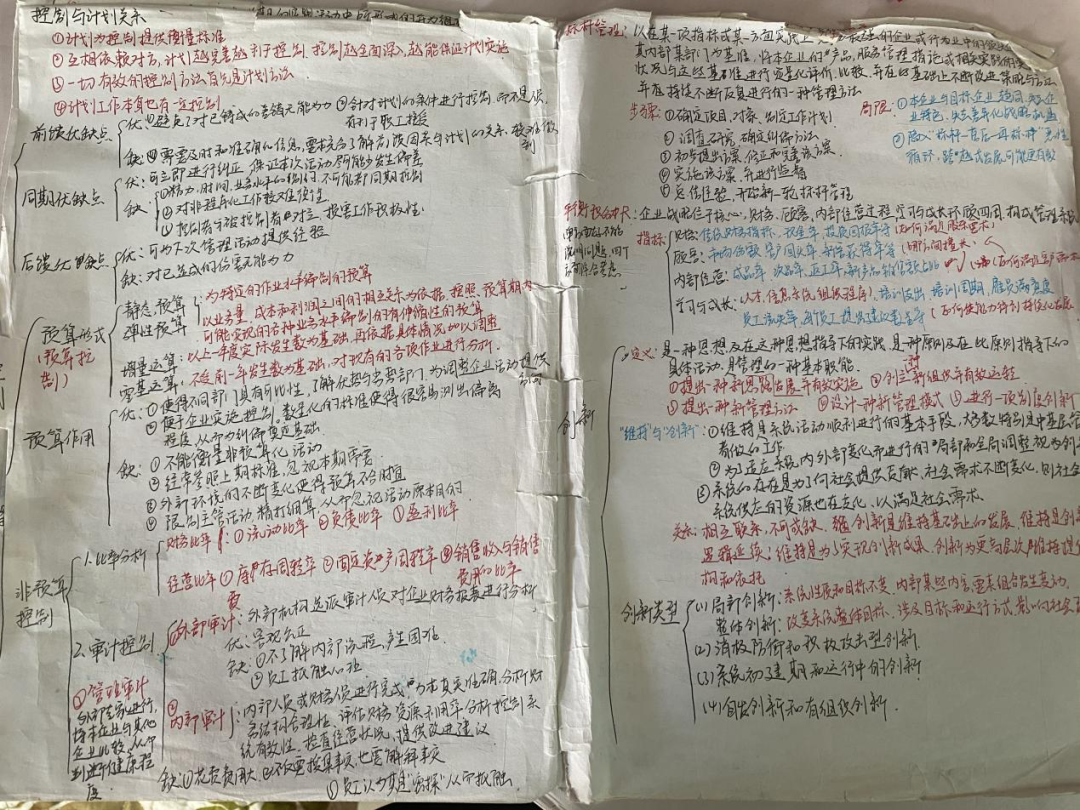 控制与计划关系
①计划为控制提供衡量标准
②互相依赖对方,计划越完善越利于控制,控制越全面深入,越能保证计划实施
③一切有效的控制方法首先是计划方法
④计划工作本身也有一定控制
前馈优缺点
优:①避免了对已铸成的差错无能为力 ②针对计划的条件进行控制,而不是人
有利于职工接受
缺:需要及时和准确的信息,需要充分了解控制因素与计划的关系,较难做到
同期优缺点
优:可立即进行纠正,保证本次活动尽可能少发生偏差
缺:①精力、时间、业务水平的制约,不可能都同期控制
②对非程序化工作较难使用
③控制者与被控制者对立,损害工作积极性
后馈优缺点
优:可为下次管理活动提供经验
缺:对已造成的伤害无能为力
预算形式
(预算控制)
静态预算:为特定的作业水平编制的预算
弹性预算:以业务量、成本和利润之间的相互关系为依据,按照预算期内可能实现的各种业务水平编制的有伸缩性的预算
增量预算:以上年度实际发生数为基础,再依据具体情况加以调整
零基预算:不受前一年发生数为基础,对现有的各项作业进行分析
预算作用
优:①使得不同部门具有可比性,了解优势与劣势部门,为调整企业活动提供
②便于企业实施控制,数量化的标准使得很容易测出偏离程度,从而为纠偏奠定基础
缺:①不能衡量非预算化活动
②经常参照上期标准,忽视本期需要
③外部环境的不断变化使得预算不合时宜
④限制主管活动,精打细算,从而忽视活动原本目的
非预算控制
1.比率分析
财务比率:①流动比率 ②负债比率 ③盈利比率
经营比率 ①库存周转率 ②固定资产周转率 ③销售收入与销售费用的比率
2.审计控制
外部审计:外部机构选派审计人员对企业财务报表进行分析
优:客观公正
缺:①不了解内部流程,产生困难
②员工抵触心理
内部审计:内部人员或财务人员进行完成,为求真实准确,分析财务结构合理性,评估财务资源利用率,分析控制系统有效性,检查经营状况,提供改进建议
缺:①花费费用大 ②不仅需要搜集事实,也要解释事实
③员工认为是“密探”从而抵触
③管理审计
外部专家进行,将本企业与其他企业比较,从而判断健康程度
标杆管理:以在某一项指标或某一方面实践上竞争力最强的企业或行业中的领先企业或其内部某部门为基准,将本企业的产品,服务管理措施或相关实践的实际状况与这些基准进行定量化评价,比较,并在此基础上不断改进策略与方法并在持续不断反复进行的一种管理方法
步骤:①确定项目、对象,制定工作计划
②调查研究,确定纠偏方法
③初步提出方案,修正和完善该方案
④实施该方案,并进行监督
⑤总结经验,开始新一轮标杆管理
局限:①本企业与目标企业趋同
②陷入“标杆—落后—再标杆”恶性循环
平衡积分卡:企业战略位于核心,财务、顾客、内部经营过程,学习与成长环顾四周,构成管理系统
指标
财务:
顾客:
内部经营:成品率、次品率、返工率、新产品销售额占比
学习与成长:(人才,信息系统,组织程序)、培训支出、培训周期、雇员满意度
创新
定义:是一种思想及在这种思想指导下的实践,是一种原则及在此原则指导下的具体活动,是管理的一种基本职能。
①提出一种新思路发展并有效实施 ②创立一种新组织并有效运转
③提出一种新管理方法 ④设计一种新管理模式 ⑤进行一项制度创新
“维持”与“创新”:①维持是系统活动顺利进行的基本手段,大多数特别是中基层管
着做的工作
②为适应系统内外部变化而进行的局部和全局调整视为创
③系统的存在是为了向社会提供贡献,社会需求不断变化,则社会
系统供应的资源也在变化,以满足社会需求
关系:相互联系,不可或缺。创新是维持基础上的发展,维持是创
逻辑延续;维持是为了实现创新成果,创新为更高层次的维持提
和依托
创新类型
(1)局部创新:系统性质和目标不变,内部某些内容要素组合发生变动
整体创新:改变系统整体目标,涉及目标和运行方式,影响社会
(2)消极防御和积极攻击型创新
(3)系统初建期和运行中的创新
(4)自发创新和有组织创新